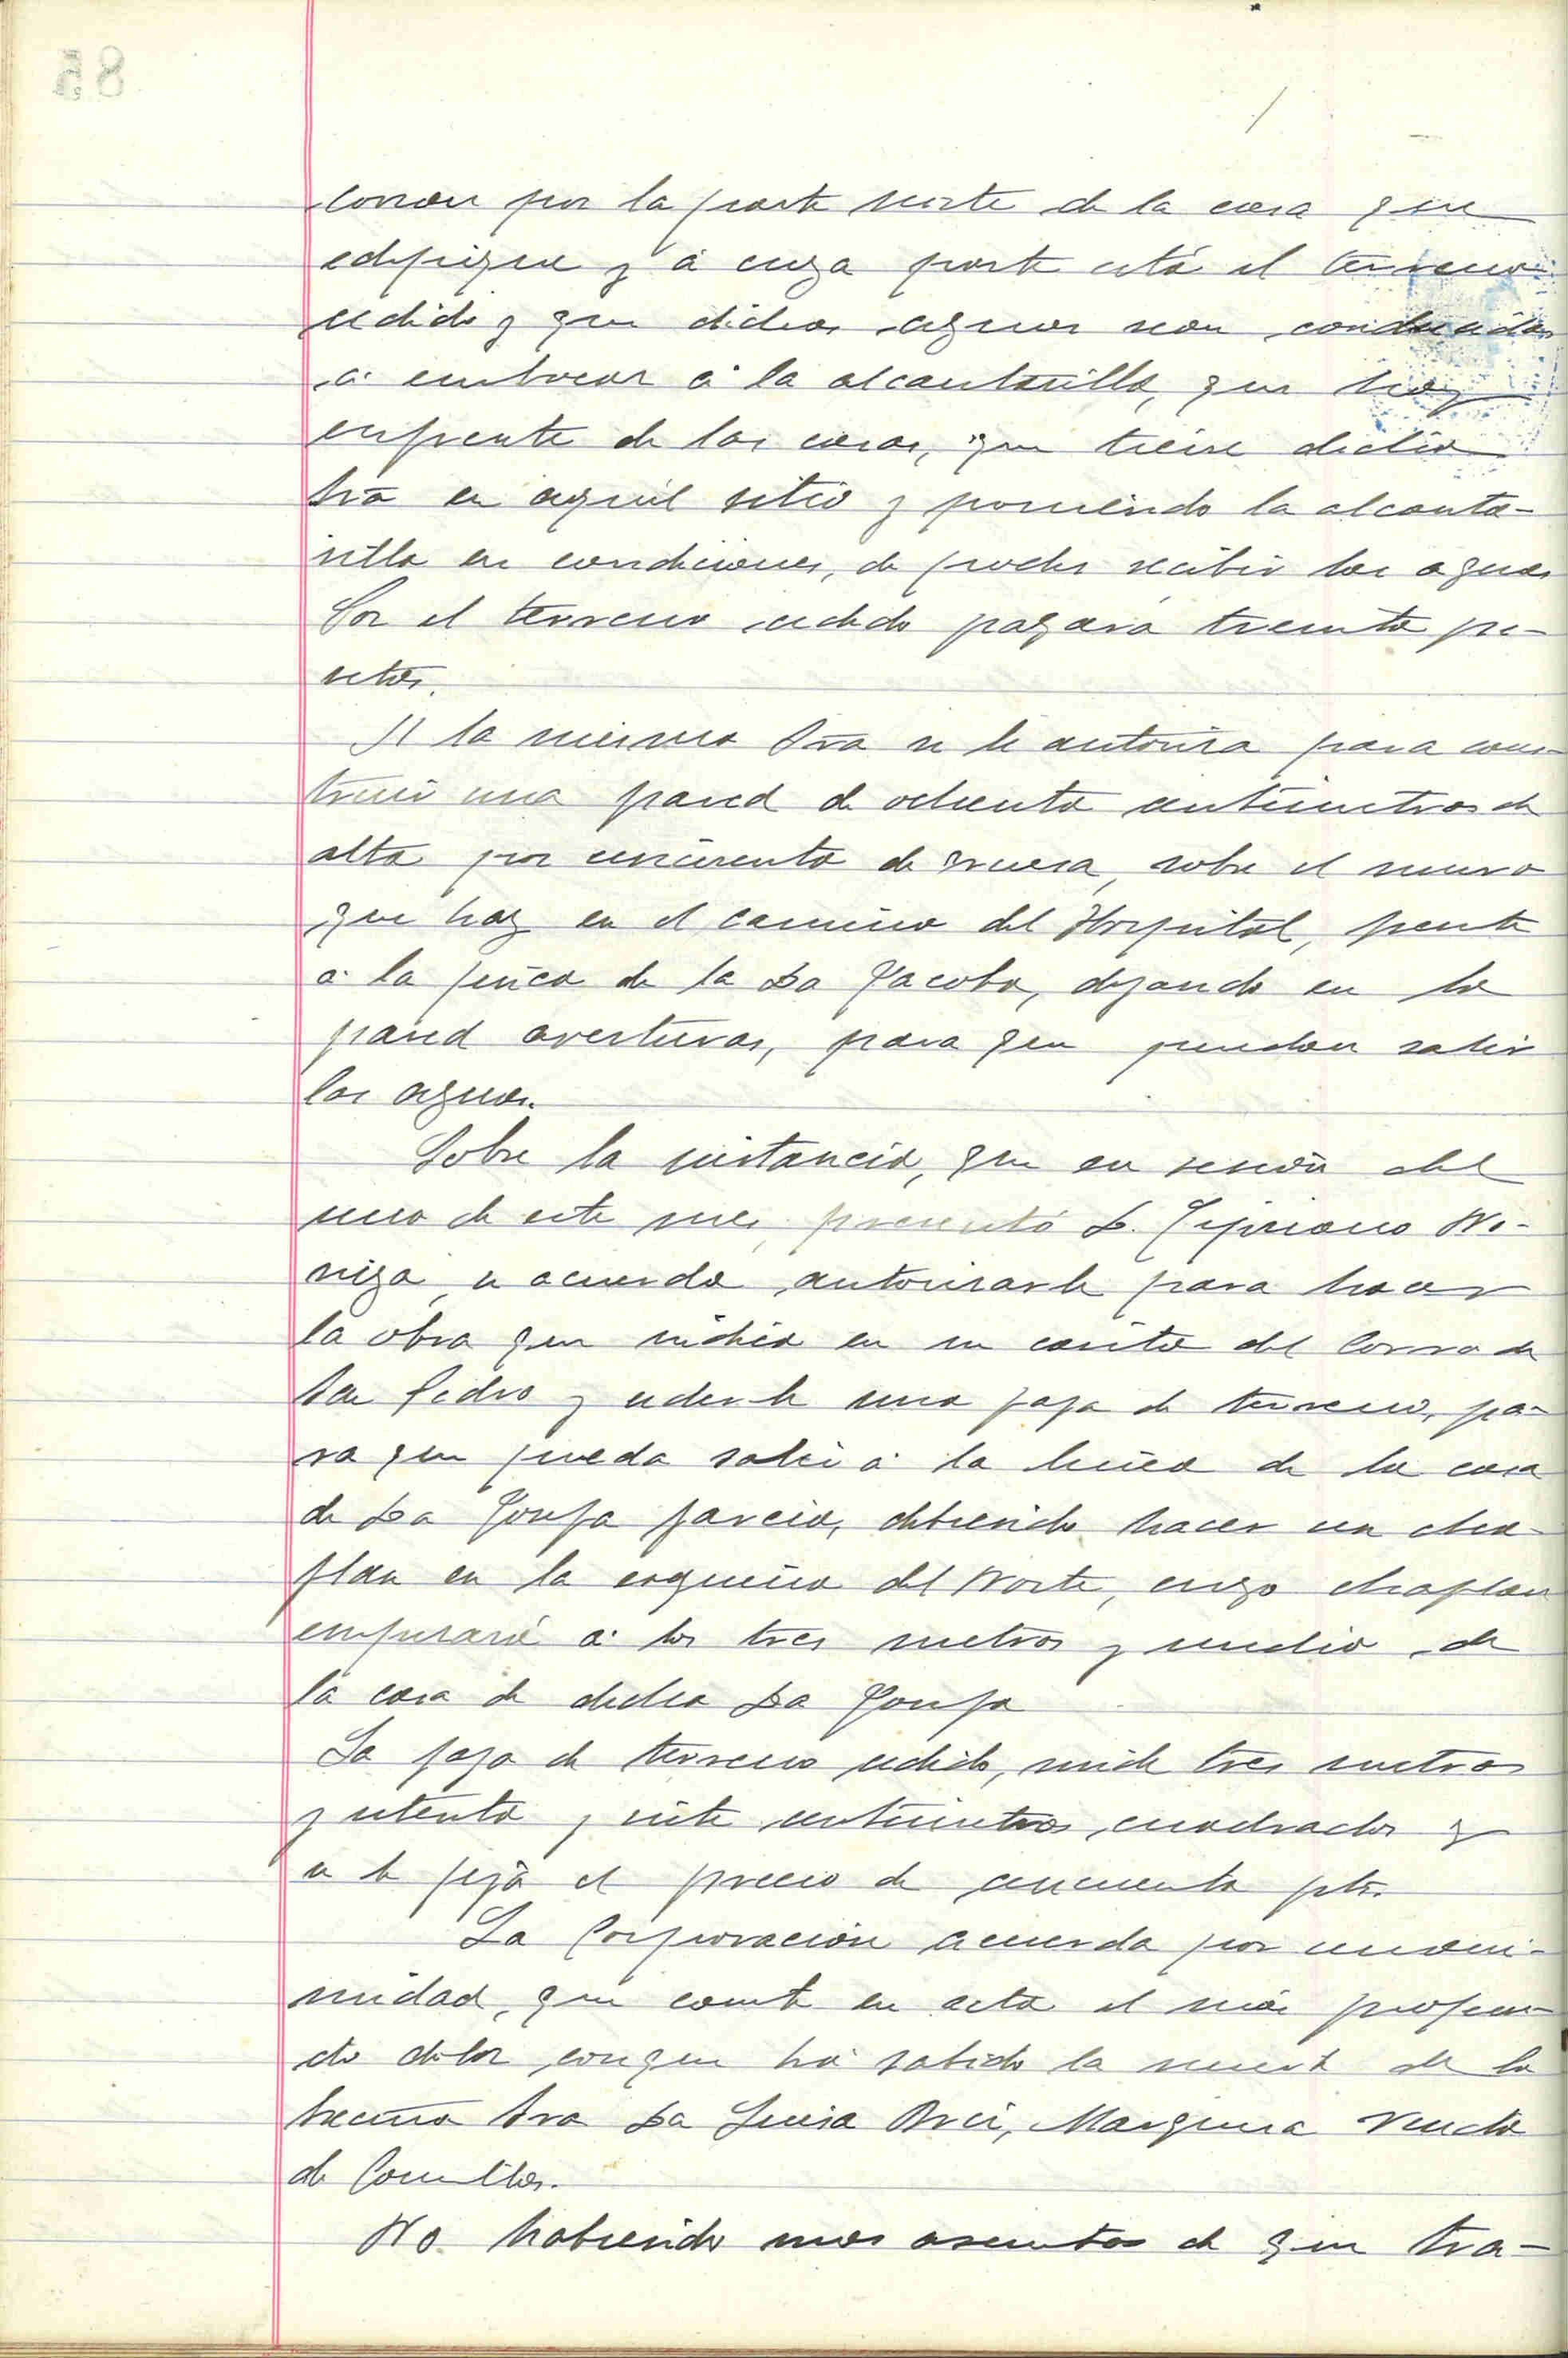 corran por la parte norte de la casa que
edifique y á cuya parte está el terreno
cedido y que dichas aguas sean conducidas
á embocar á la alcantarilla, que hay
enfrente de las casas, que tiene dicha
Sra en aquél sitio y poniendo la alcanta-
rilla en condiciones, de poder recibir las aguas
Por el terreno cedido pagará treinta pe-
setas.
A la misma Sra se le autoriza para cons-
truir una pared de ochenta centimetros de
alta por cincuenta de gruesa, sobre el muro
que hay en el camino del Hospital, frente
á la finca de la Da Jacoba, dejando en la
pared averturas, para que puedan salir
las aguas.
Sobre la instancia, que en sesión del
uno de este mes, presentó D. Cipriano No-
riega, se acuerda autorizarle para hacer
la obra que indica en su casita del Corro de
San Pedro y cederle una faja de terreno, pa-
ra que pueda salir á la linea de la casa
de Da Josefa Garcia, debiendo hacer un cha-
flan en la esquina del Norte, cuyo chaflan
empezará á los tres metros y medio de
la casa de dicha Da Josefa
La faja de terreno cedido, mide tres metros
y setenta y siete centimetros cuadrados y
se le fija el precio de cincuenta pts.
La Corporación acuerda por unani-
midad, que conste en acta el más profun-
do dolor conque há sabido la muerte de la
Excma Sra Da Luisa Brú, Marquesa Viuda
de Comillas.
No habiendo mas asuntos de que tra-